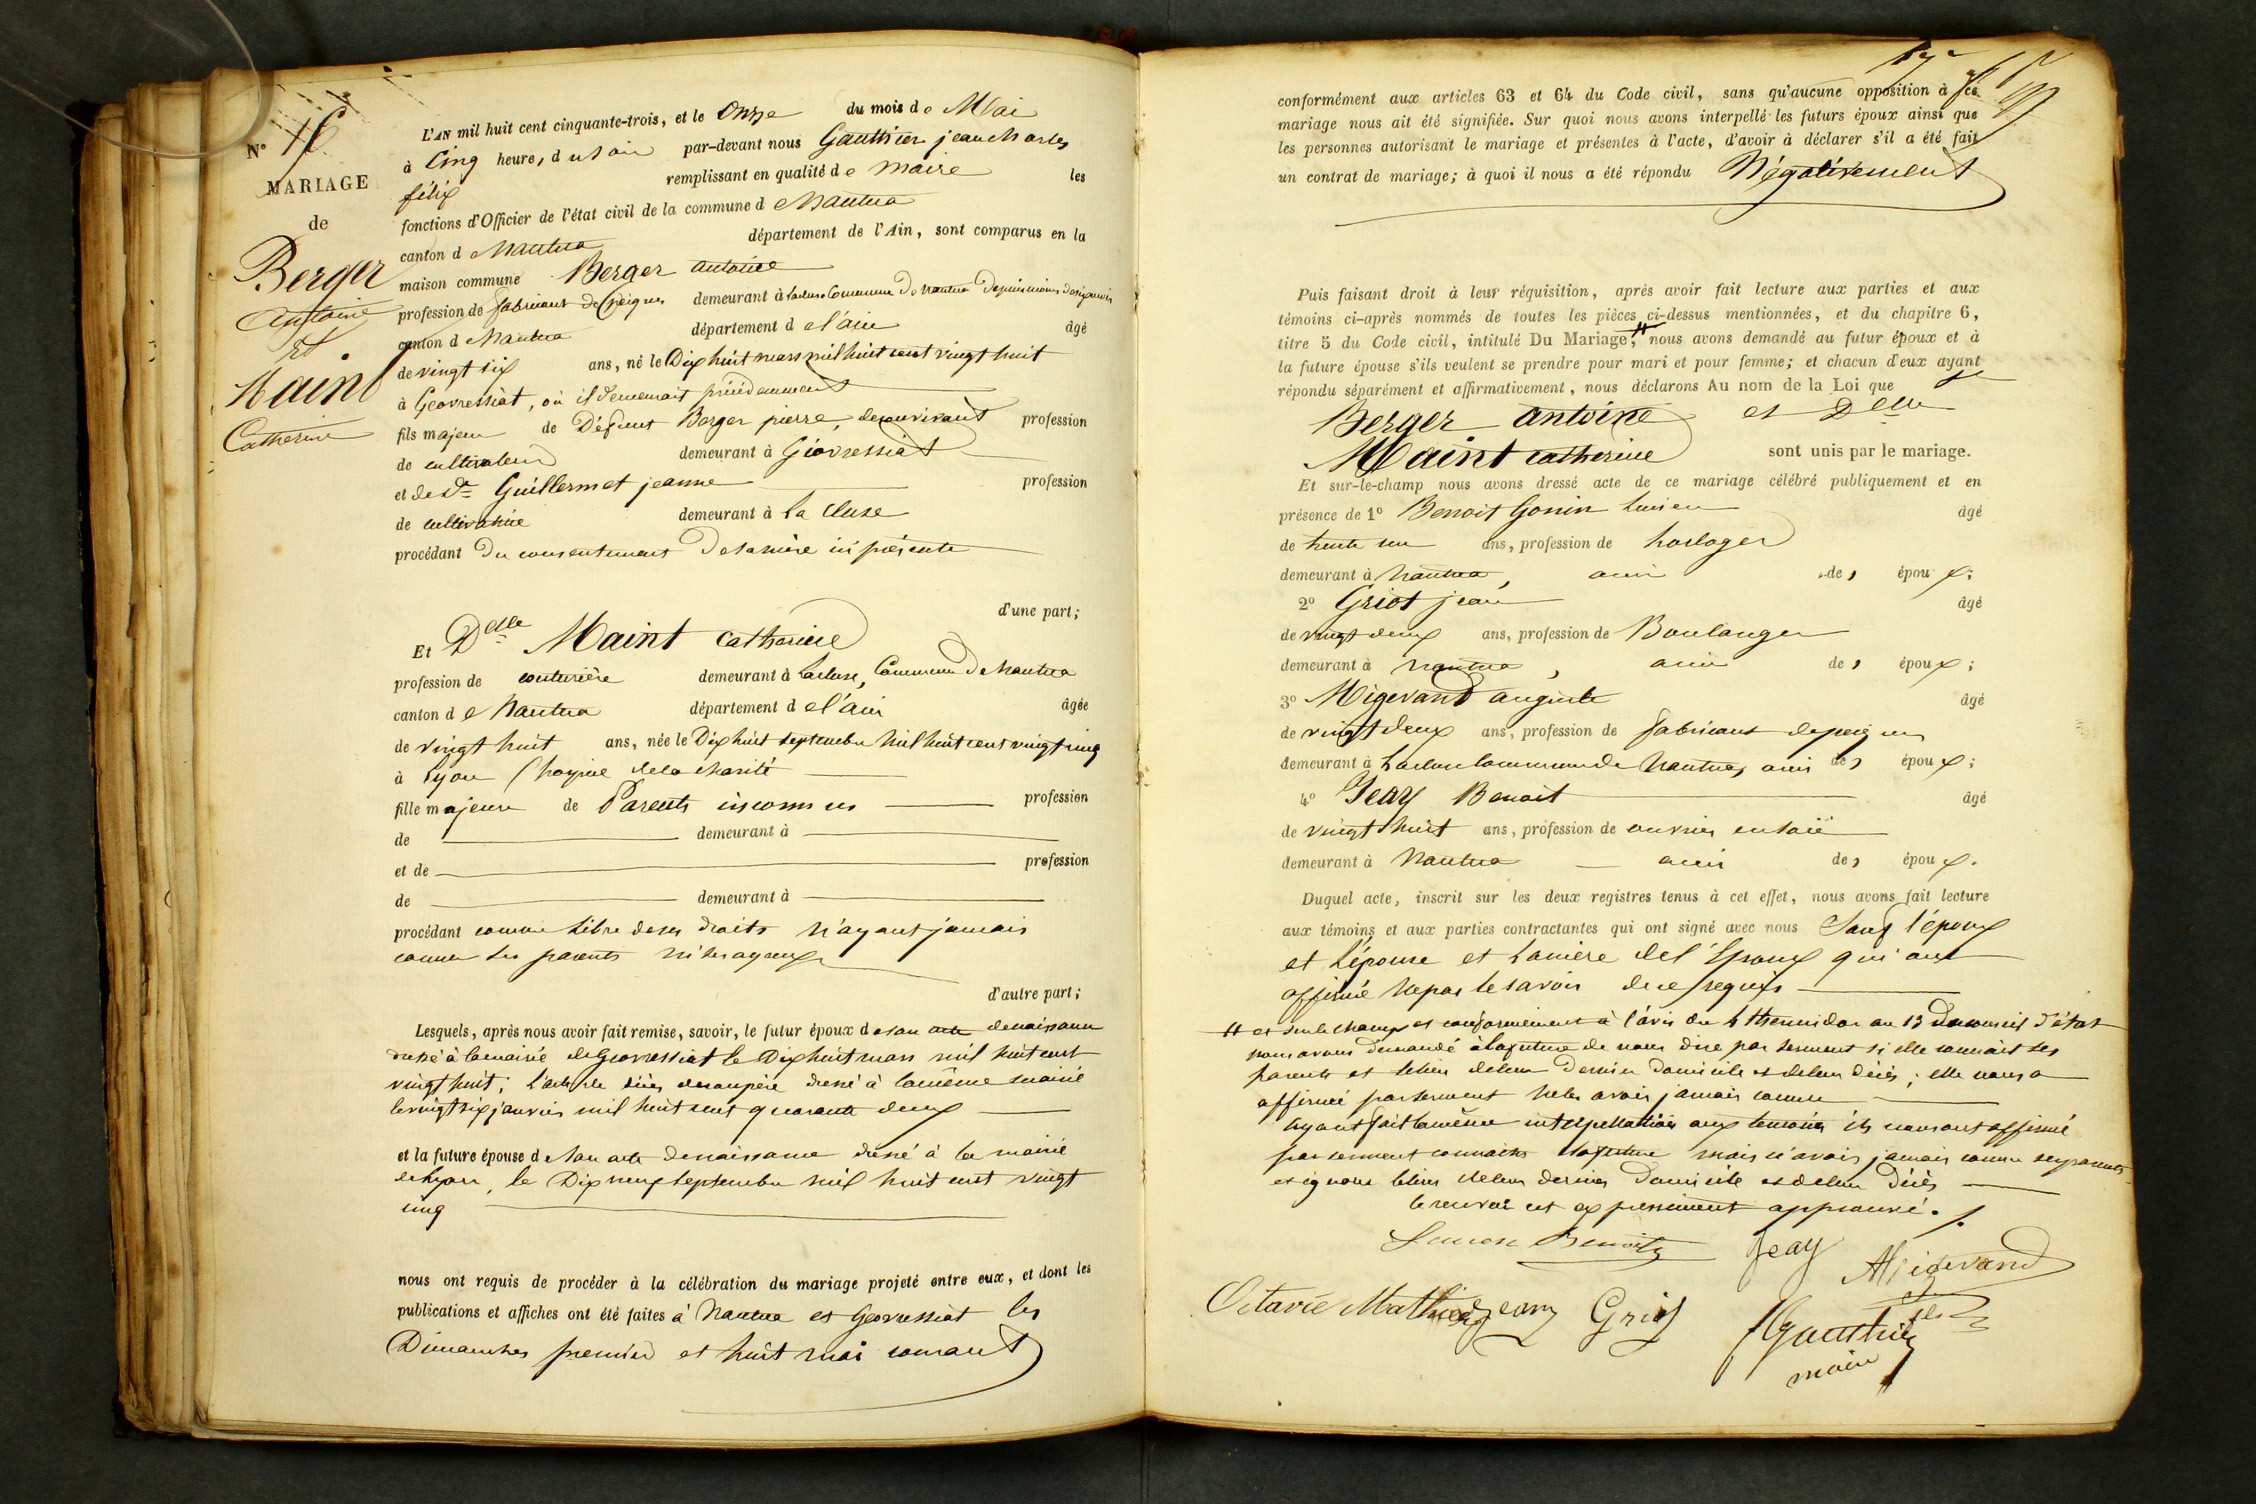 N° 16
MARIAGE
de
Berger
Antoine
et
Maint
Catherine
L'AN mil huit cent cinquante-trois, et le Onze du mois de Mai
à Cinq heures du soir par-devant nous Gauthier jean charles
félix remplissant en qualité de maire les
fonctions d'Officier de l'état civil de la commune de Nantua
canton de Nantua département de l'Ain, sont comparus en la
maison commune Berger antoine
profession de fabricant de peignes demeurant à Lacluse Commune de nantua Depuis moins de six mois
canton de Nantua département de l'ain âgé
de vingt six ans, né le Dix huit mars mil huit cent vingt huit
à Geovressiat, où il demeurait précédemment
fils majeur de Défunt Berger pierre, de son vivant profession
de cultivateur demeurant à Géovressiat
et de De Guillermet jeanne profession
de cultivatrice demeurant à la Cluse
procédant Du consentement De sa mère ici présente
d'une part;
Et Delle Maint Catherine
profession de couturière demeurant à Lacluse, Commune de Nantua
canton de Nantua département de l'ain âgée
de vingt huit ans, née le Dix huit septembre Mil huit cent vingt cinq
à Lyon (hospice de la charité
fille majeure de Parents inconnus profession
de demeurant à
et de profession
de demeurant à
procédant comme Libre de ses droits n'ayant jamais
connu ses parents ni ses ayeux
d'autre part;
Lesquels, après nous avoir fait remise, savoir, le futur époux de son acte de naissance
dressé à la mairie de Geovressiat le Dix huit mars mil huit cent
vingt huit; l'acte de décès de son père dressé à la même mairie
le vingt six janvier mil huit cent quarante deux
et la future épouse de son acte de naissance dressé à la mairie
de Lyon, le Dix neuf septembre mil huit cent vingt
cinq
nous ont requis de procéder à la célébration du mariage projeté entre eux, et dont les
publications et affiches ont été faites à Nantua et Geovressiat les
Dimanches premier et huit mai courant
conformément aux articles 63 et 64 du Code civil, sans qu'aucune opposition à ce
mariage nous ait été signifiée. Sur quoi nous avons interpellé les futurs époux ainsi que
les personnes autorisant le mariage et présentes à l'acte, d'avoir à déclarer s'il a été fait
un contrat de mariage; à quoi il nous a été répondu Négativement
Puis faisant droit à leur réquisition, après avoir fait lecture aux parties et aux
témoins ci-après nommés de toutes les pièces ci-dessus mentionnées, et du chapitre 6,
titre 5 du Code civil, intitulé Du Mariage, # nous avons demandé au futur époux et à
la future épouse s'ils veulent se prendre pour mari et pour femme; et chacun d'eux ayant
répondu séparément et affirmativement, nous déclarons Au nom de la Loi que
Berger antoine et Delle
Maint catherine sont unis par le mariage.
Et sur-le-champ nous avons dressé acte de ce mariage célébré publiquement et en
présence de 1° Benoit Gonin Lucien âgé
de trente un ans, profession de horloger
demeurant à Nantua, ami des époux;
2° Griot jean âgé
de vingt deux ans, profession de Boulanger
demeurant à nantua, ami des époux;
3° Migevand auguste âgé
de vingt deux ans, profession de fabricant de peignes
demeurant à Lacluse Commune de Nantua, ami des époux;
4° Jeay Benoit âgé
de vingt huit ans, profession de ouvrier en soie
demeurant à Nantua ami des époux.
Duquel acte, inscrit sur les deux registres tenus à cet effet, nous avons fait lecture
aux témoins et aux parties contractantes qui ont signé avec nous Sauf l'époux
et L'épouse et La mère de l'Epoux qui ont
affirmé Ne pas le savoir de ce requis
# et sur le champ et conformément à l'avis du 4 thermidor an 13 du conseil d'état
nous avons demandé à la future de nous dire par serment si elle connait ses
parents et le lieu de leur Dernier domicile et de leur décès; elle nous a
affirmé par serment ne les avoir jamais connus
Ayant fait la même interpellation aux temoins ils nous ont affirmé
par serment connaitre la future mais n'avoir jamais connu ses parents
et ignorer le lieu de leur dernier Domicile et de leur Décès
le renvoi est expressément approuvé.
Benoit Jeay Migevand
Octavie Mathieu jean Griot fGauthier
maire